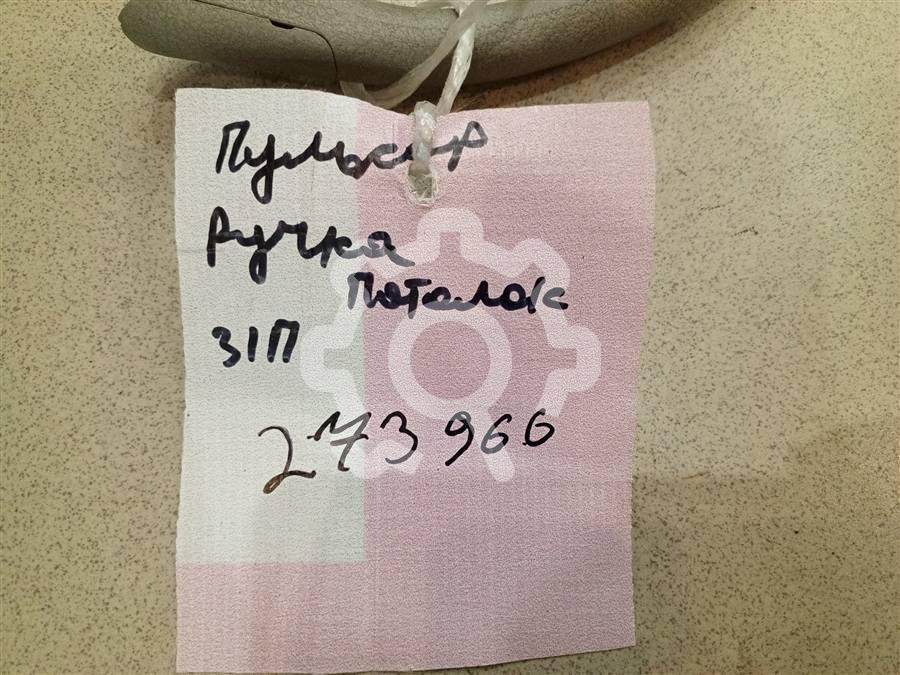 Пульсар
Ручка
Поталок
ЗIП
273966